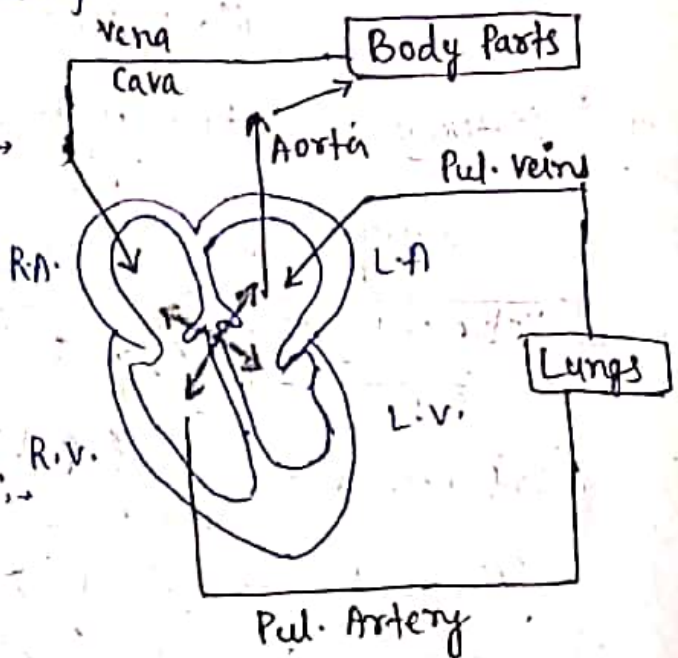 vena
Cava
Body Parts
Aorta
Pul. veins
R.A.
L.A
Lungs
L.V.
R.V.
Pul. Artery